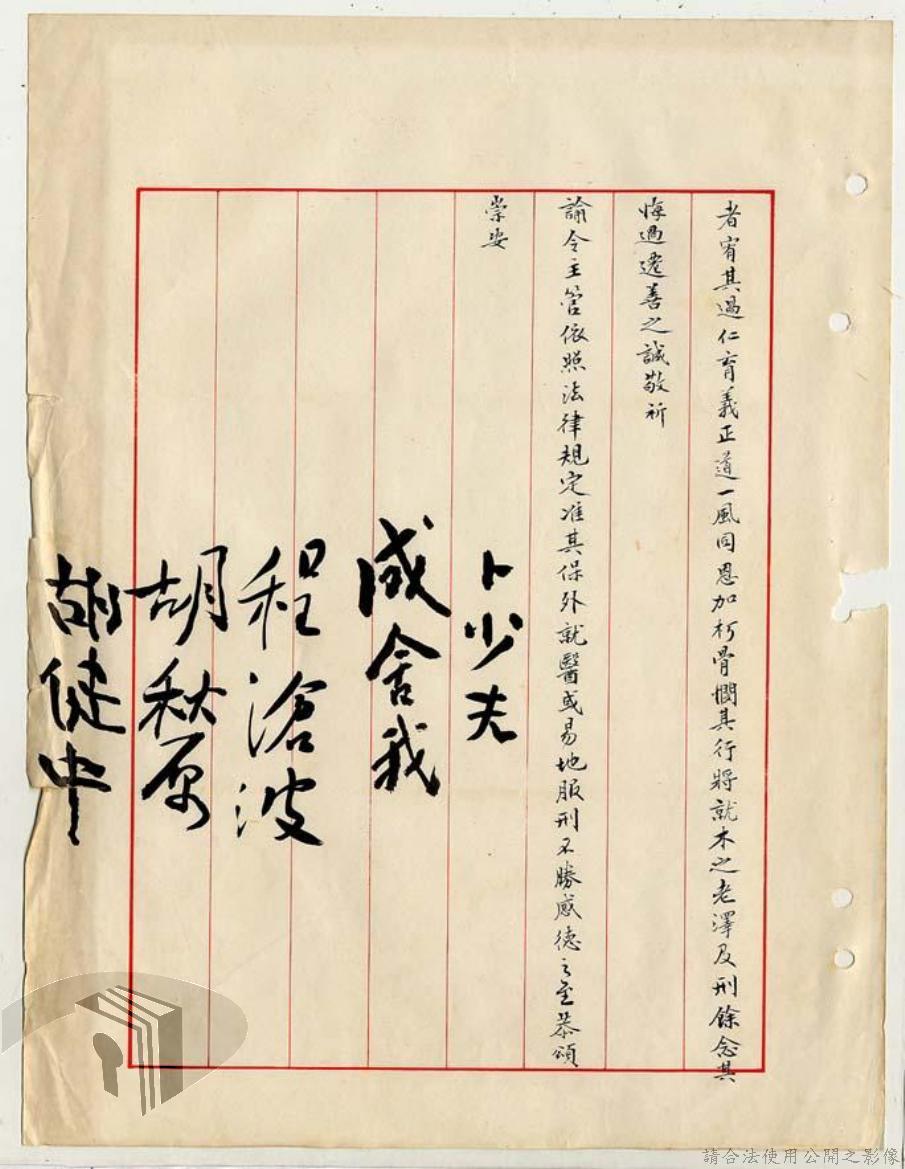 者宥其過仁育義正道一風同恩加朽骨憫其行將就木之老澤及刑餘念其
悔過遷善之誠敬祈
諭令主管依照法律規定准其保外就醫或易地服刑不勝感德之至恭頌
崇安
卜少夫
成舍我
程滄波
胡秋原
胡健中
請合法使用公開之影像